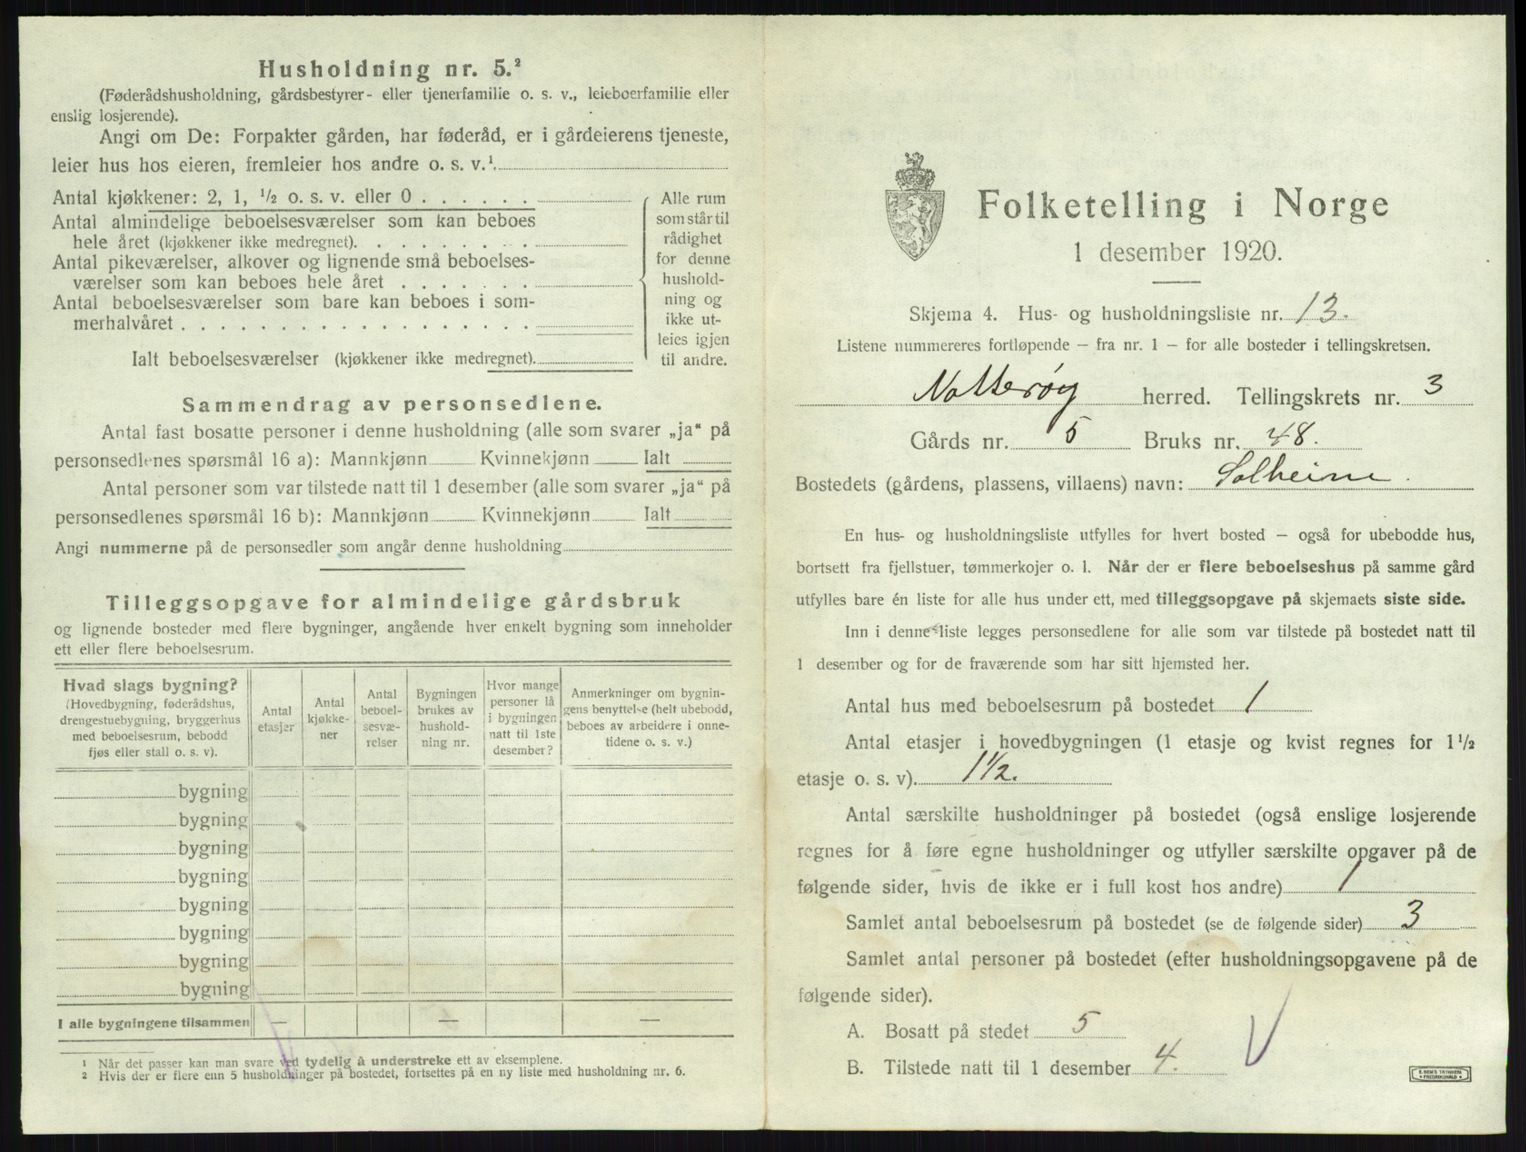 Husholdning nr. 5.²
(Føderådshusholdning, gårdsbestyrer- eller tjenerfamilie o. s. v., leieboerfamilie eller
enslig losjerende).
Angi om De: Forpakter gården, har føderåd, er i gårdeierens tjeneste,
leier hus hos eieren, fremleier hos andre o. s. v.¹
Antal kjøkkener: 2, 1, ½ o. s. v. eller 0
Antal almindelige beboelsesværelser som kan beboes
hele året (kjøkkener ikke medregnet).
Antal pikeværelser, alkover og lignende små beboelses-
værelser som kan beboes hele året
Antal beboelsesværelser som bare kan beboes i som-
merhalvåret
Ialt beboelsesværelser (kjøkkener ikke medregnet).
Alle rum
som står til
rådighet
for denne
hushold-
ning og
ikke ut-
leies igjen
til andre.
Sammendrag av personsedlene.
Antal fast bosatte personer i denne husholdning (alle som svarer „ja“ på
personsedlenes spørsmål 16 a): Mannkjønn Kvinnekjønn Ialt
Antal personer som var tilstede natt til 1 desember (alle som svarer „ja“ på
personsedlenes spørsmål 16 b): Mannkjønn Kvinnekjønn Ialt
Angi nummerne på de personsedler som angår denne husholdning
Tilleggsopgave for almindelige gårdsbruk
og lignende bosteder med flere bygninger, angående hver enkelt bygning som inneholder
ett eller flere beboelsesrum.
Hvad slags bygning?
(Hovedbygning, føderådshus,
drengestuebygning, bryggerhus
med beboelsesrum, bebodd
fjøs eller stall o. s. v).
Antal
etasjer
Antal
kjøkke-
ner
Antal
beboel-
sesvæ-
relser
Bygningen
brukes av
hushold-
ning nr.
Hvor mange
personer lå
i bygningen
natt til 1ste
desember?
Anmerkninger om bygnin-
gens benyttelse (helt ubebodd,
beboes av arbeidere i onne-
tidene o. s. v.)
bygning
bygning
bygning
bygning
bygning
bygning
bygning
bygning
I alle bygningene tilsammen — — —
¹ Når det passer kan man svare ved tydelig å understreke ett av eksemplene.
² Hvis der er flere enn 5 husholdninger på bostedet, fortsettes på en ny liste med husholdning nr. 6.
Folketelling i Norge
1 desember 1920.
Skjema 4. Hus- og husholdningsliste nr. 13.
Listene nummereres fortløpende – fra nr. 1 – for alle bosteder i tellingskretsen.
Nøtterøy herred. Tellingskrets nr. 3
Gårds nr. 5 Bruks nr. 48.
Bostedets (gårdens, plassens, villaens) navn: Solheim.
En hus- og husholdningsliste utfylles for hvert bosted – også for ubebodde hus,
bortsett fra fjellstuer, tømmerkojer o. l. Når der er flere beboelseshus på samme gård
utfylles bare én liste for alle hus under ett, med tilleggsopgave på skjemaets siste side.
Inn i denne liste legges personsedlene for alle som var tilstede på bostedet natt til
1 desember og for de fraværende som har sitt hjemsted her.
Antal hus med beboelsesrum på bostedet 1
Antal etasjer i hovedbygningen (1 etasje og kvist regnes for 1½
etasje o. s. v). 1½.
Antal særskilte husholdninger på bostedet (også enslige losjerende
regnes for å føre egne husholdninger og utfyller særskilte opgaver på de
følgende sider, hvis de ikke er i full kost hos andre) 1
Samlet antal beboelsesrum på bostedet (se de følgende sider) 3
Samlet antal personer på bostedet (efter husholdningsopgavene på de
følgende sider).
A. Bosatt på stedet 5
B. Tilstede natt til 1 desember 4.